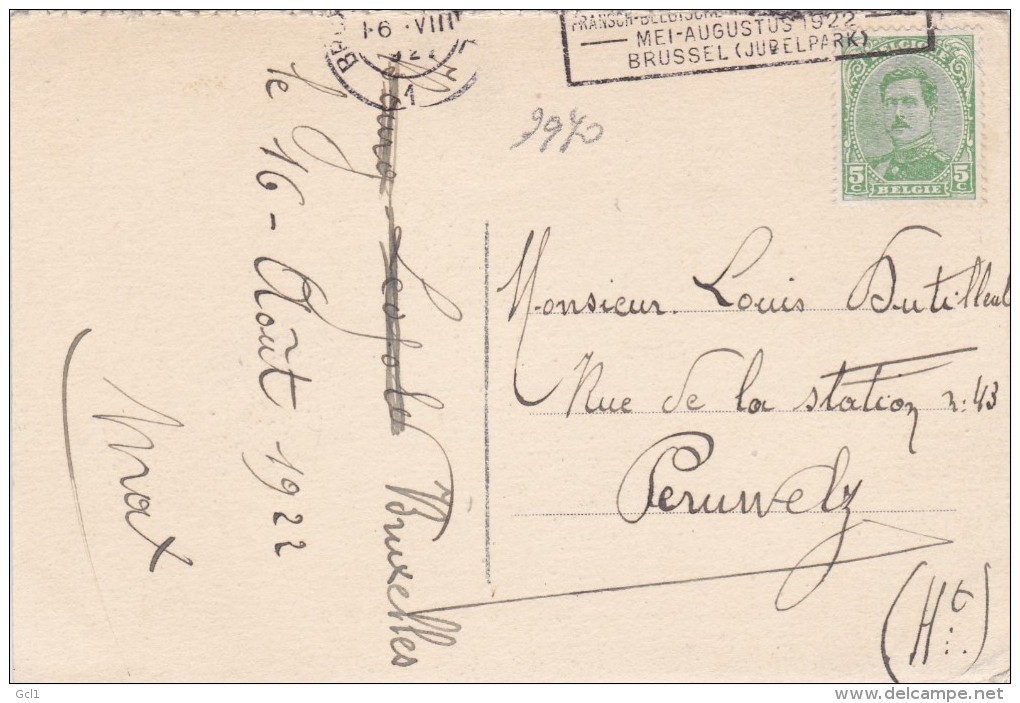 1-6 VIII
1
FRANSCH-BELGISCHE
MEI-AUGUSTUS 1922
BRUSSEL (JUBELPARK)
BELGIE
5c 5c
9970
Bruxelles
le 16 - Août 1922
Max
Monsieur Louis Dutilleul
Rue de la station n: 43
Peruwelz
(Ht)
Gcl1
www.delcampe.net